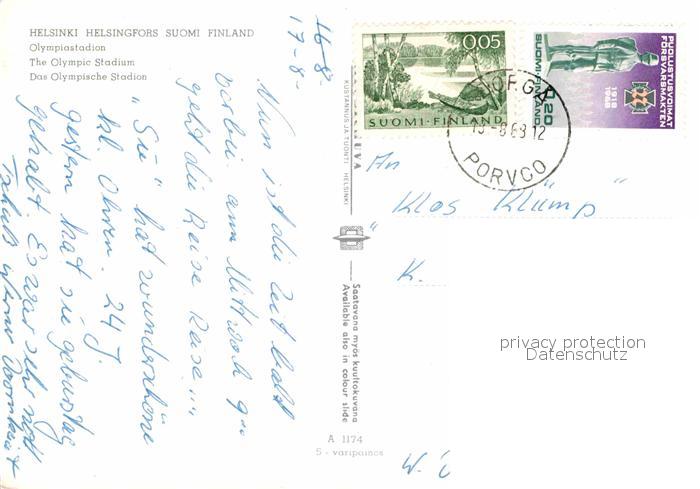 HELSINKI HELSINGFORS SUOMI FINLAND
Olympiastadion
The Olympic Stadium
Das Olympische Stadion
16-8
17-8-
Nun ist die Zeit bald
vorbei. am Mittwoch
geht die Reise
"Sie" hat wunderschöne
Ohren. 24 J.
gestern hat sie geburtstag
gehabt. Es war sehr nett
KUSTANNUS JA TUONTI HELSINKI
Saatavana myös kuultokuvana
Available also in colour slide
A 1174
5 - väripainos
0,05
SUOMI-FINLAND
PUOLUSTUSVOIMAT
FÖRSVARSMAKTEN
1918
1968
0,20
SUOMI-FINLAND
PORVOO
An
Klos "Klump"
K.
privacy protection
Datenschutz